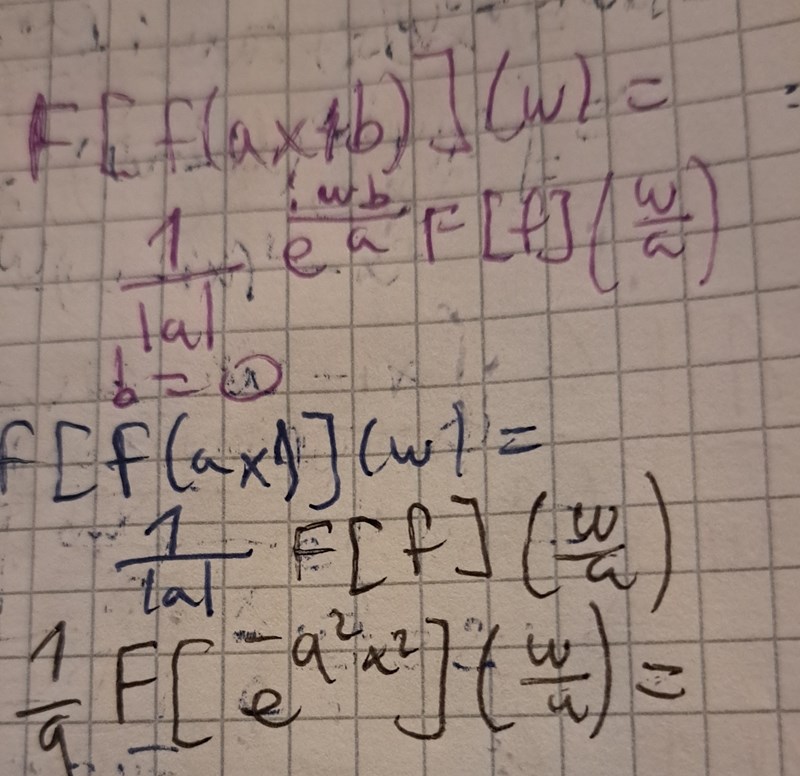 F[f(ax+b)](w) =
1/|a| · e^(iwb/a) F[f](w/a)
b = 0
F[f(ax)](w) =
1/|a| F[f](w/a)
1/a F[e^(-a²x²)](w/a) =